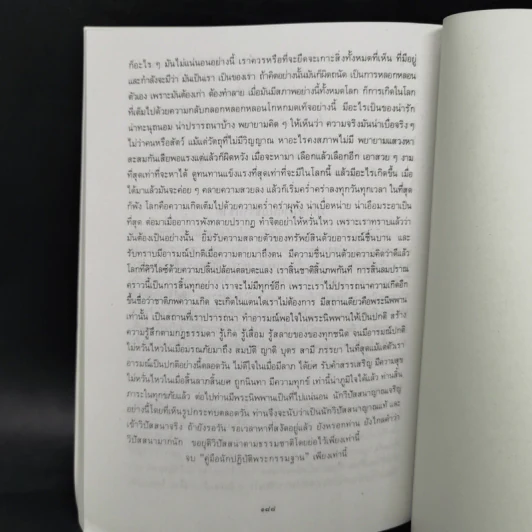 ก็อะไร ๆ มันไม่แน่นอนอย่างนี้ เราควรหรือที่จะยึดจะเกาะสิ่งทั้งหมดที่เห็น ที่มีอยู่
และกำลังจะมีว่า มันเป็นเรา เป็นของเรา ถ้าคิดอย่างนั้นมันก็ผิดถนัด เป็นการหลอกหลอน
ตัวเอง เพราะมันต้องเก่า ต้องทำลาย เมื่อมันมีสภาพอย่างนี้ทั้งหมดโลก ก็การเกิดในโลก
ที่เต็มไปด้วยความกลับกลอกหลอกหลอนโกหกมดเท็จอย่างนี้ มีอะไรเป็นของน่ารัก
น่าทะนุถนอม น่าปรารถนาบ้าง พยายามคิด ๆ ให้เห็นว่า ความจริงมันน่าเบื่อจริง ๆ
ไม่ว่าคนหรือสัตว์ แม้แต่วัตถุที่ไม่มีวิญญาณ หาอะไรคงสภาพไม่มี พยายามแสวงหา
สะสมกันเสียพอแรงแต่แล้วก็ผิดหวัง เมื่อจะหามา เลือกแล้วเลือกอีก เอาสวย ๆ งาม
ที่สุดเท่าที่จะหาได้ ดูทนทานแข็งแรงที่สุดเท่าที่จะมีในโลกนี้ แล้วมีอะไรเกิดขึ้น เมื่อ
ได้มาแล้วมันจะค่อย ๆ คลายความสวยลง แล้วก็เริ่มคร่ำคร่าลงทุกวันทุกเวลา ในที่สุด
ก็พัง โลกคือความเกิดเต็มไปด้วยความคร่ำคร่าผุพัง น่าเบื่อหน่าย น่าเอือมระอาเป็น
ที่สุด ต่อมาเมื่ออาการพังทลายปรากฏ ทำจิตอย่าให้หวั่นไหว เพราะเราทราบแล้วว่า
มันต้องเป็นอย่างนั้น ยิ้มรับความสลายตัวของทรัพย์สินด้วยอารมณ์ชื่นบาน และ
รับทราบมีอารมณ์ปกติเมื่อความตายมาถึงตน มีความชื่นบานด้วยความคิดว่าดีแล้ว
โลกที่ศิวิไลซ์ด้วยความปลิ้นปล้อนตอแหลง เราสิ้นชาติสิ้นภพกันที การสิ้นลมปราณ
คราวนี้เป็นการสิ้นทุกอย่าง เราจะไม่มีทุกข์อีก เพราะเราไม่ปรารถนาความเกิดอีก
ขึ้นชื่อว่าชาติภพความเกิด จะเกิดในแดนใดเราไม่ต้องการ มีสถานเดียวคือพระนิพพาน
เท่านั้น เป็นสถานที่เราปรารถนา ทำอารมณ์พอใจในพระนิพพานให้เป็นปกติ สร้าง
ความรู้สึกตามกฎธรรมดา รู้เกิด รู้เสื่อม รู้สลายของของทุกชนิด จนมีอารมณ์ปกติ
ไม่หวั่นไหวในเมื่อมรณภัยมาถึง สมบัติ ญาติ บุตร สามี ภรรยา ในที่สุดแม้แต่ตัวเรา
อารมณ์เป็นปกติอย่างนี้ตลอดวัน ไม่ดีใจในเมื่อมีลาภ ได้ยศ รับคำสรรเสริญ มีความสุข
ไม่หวั่นไหวในเมื่อสิ้นลาภสิ้นยศ ถูกนินทา มีความทุกข์ เท่านี้น่าภูมิใจได้แล้ว ท่านสิ้น
ภาระในทุกขภัยแล้ว ต่อไปท่านมีพระนิพพานเป็นที่ไปแน่นอน นักวิปัสสนาญาณเจริญ
อย่างนี้โดยที่เห็นรูปกระทบตลอดวัน ท่านจึงจะนับว่าเป็นนักวิปัสสนาญาณแท้ และ
เข้าวิปัสสนาจริง ถ้ายังรอวัน รอเวลาหาที่สงัดอยู่แล้ว ยังหรอกท่าน ยังไกลคำว่า
วิปัสสนามากนัก ขอยุติวิปัสสนาตามธรรมชาติโดยย่อไว้เพียงเท่านี้
จบ "คู่มือนักปฏิบัติพระกรรมฐาน" เพียงเท่านี้
๑๘๘